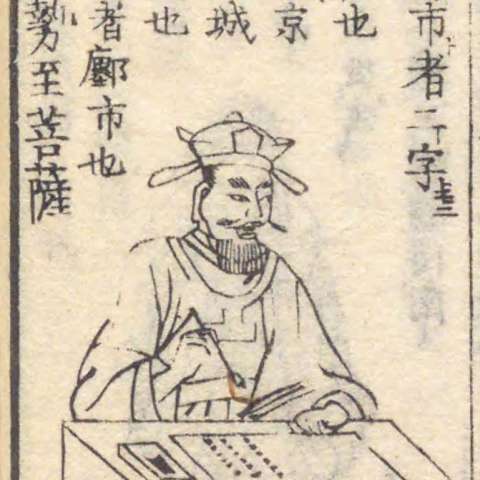 市者二字
也
京
城
也
者鄽市也
勢至菩薩